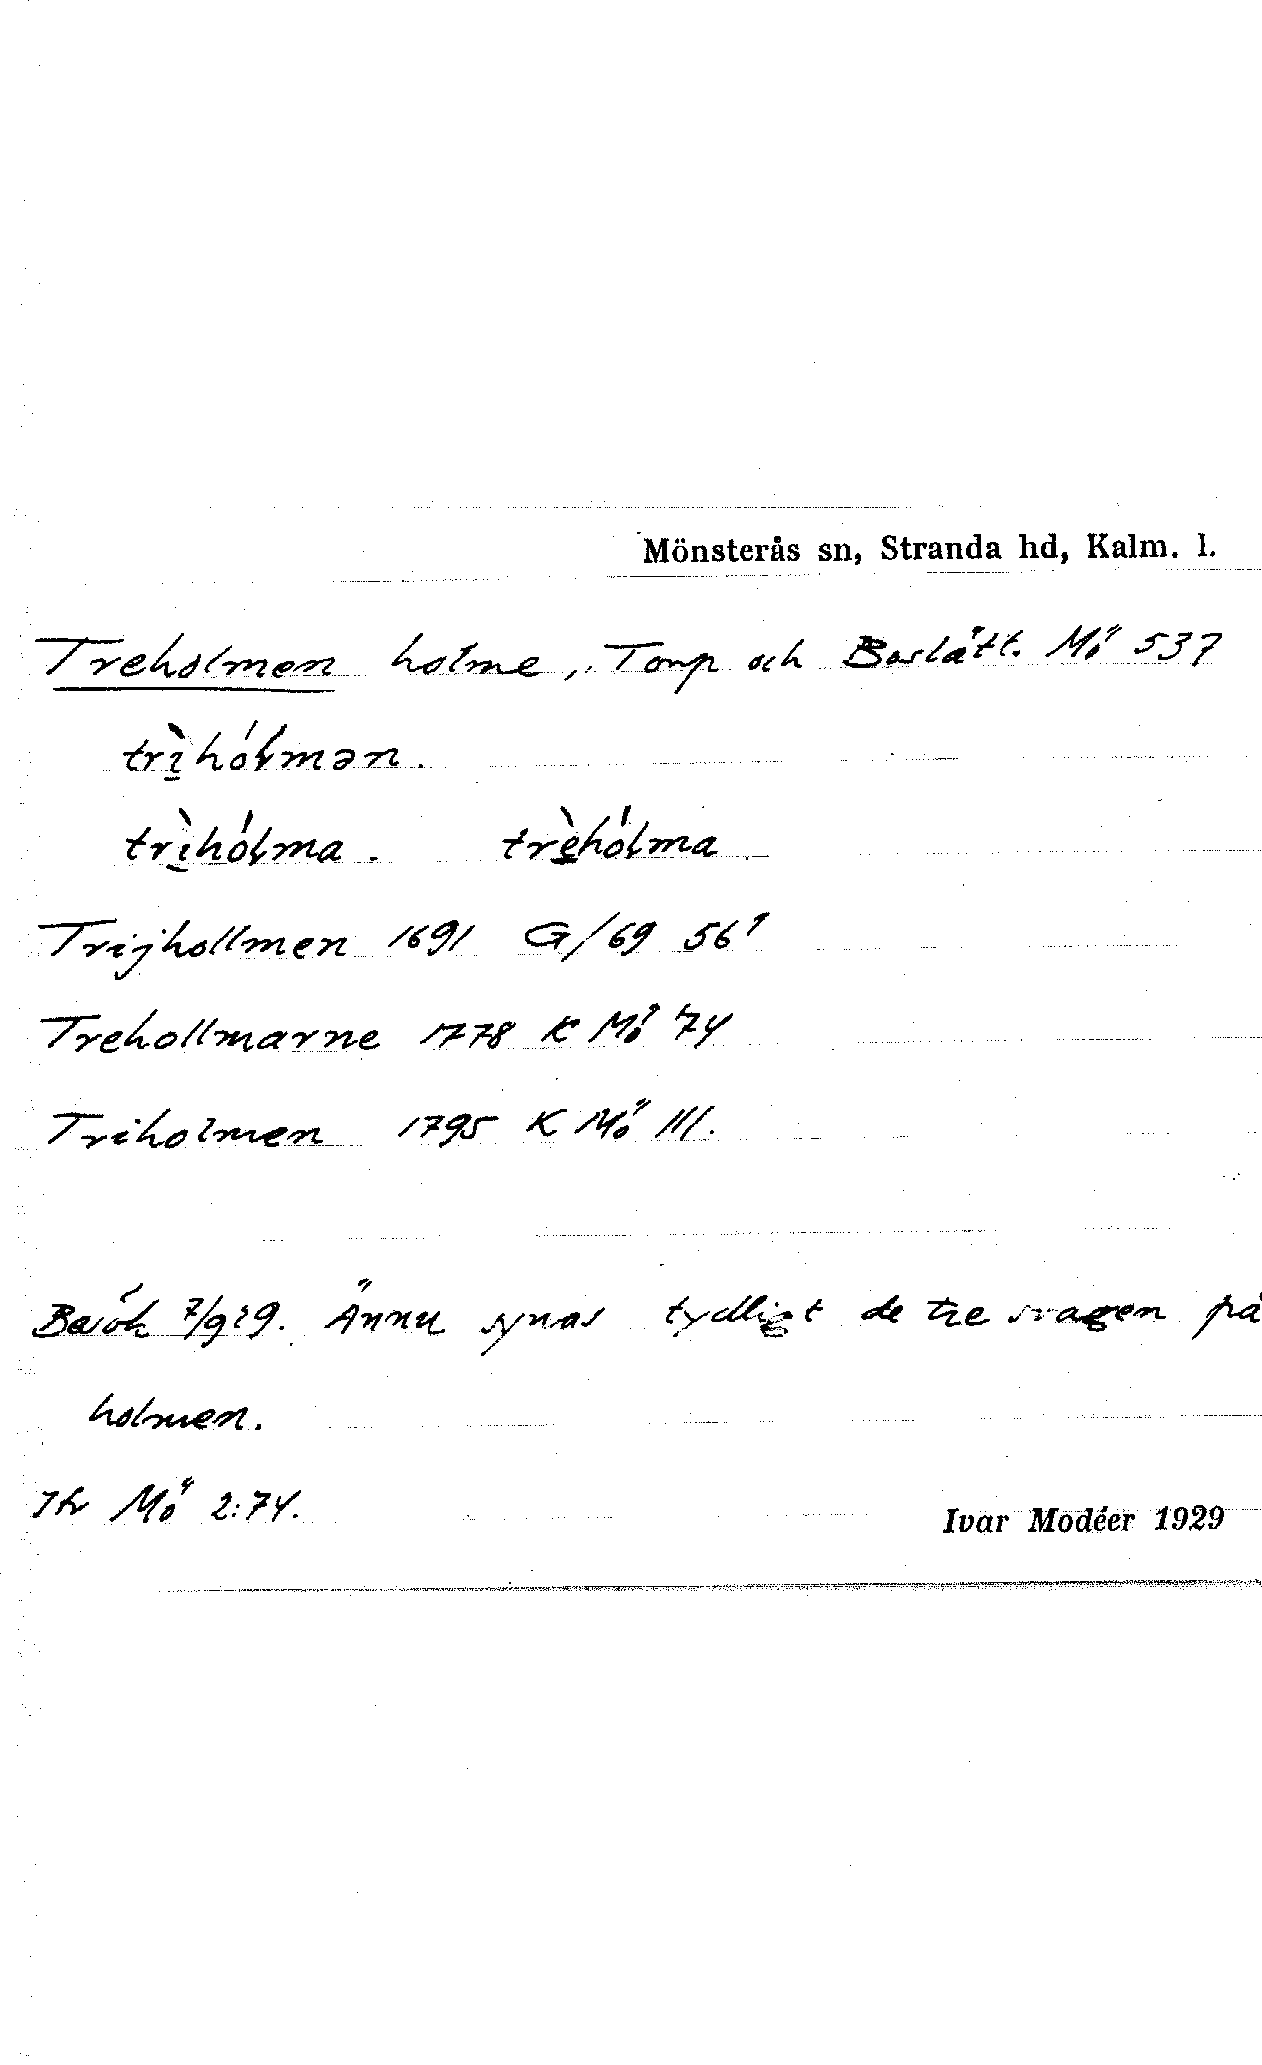 Mönsterås sn, Stranda hd, Kalm. l.
Treholmen holme, Tomp och Boslätt. Mö 537
trìhólmən.
trìhólma. trèhólma
Trijhollmen 1691 G/69 56¹
Trehollmarne 1778 K Mö 74
Triholmen 1795 K Mö III.
Besök 7/9 29. Ännu synas tydligt de tre svagen på
holmen.
Ihr Mö 2:74.
Ivar Modéer 1929